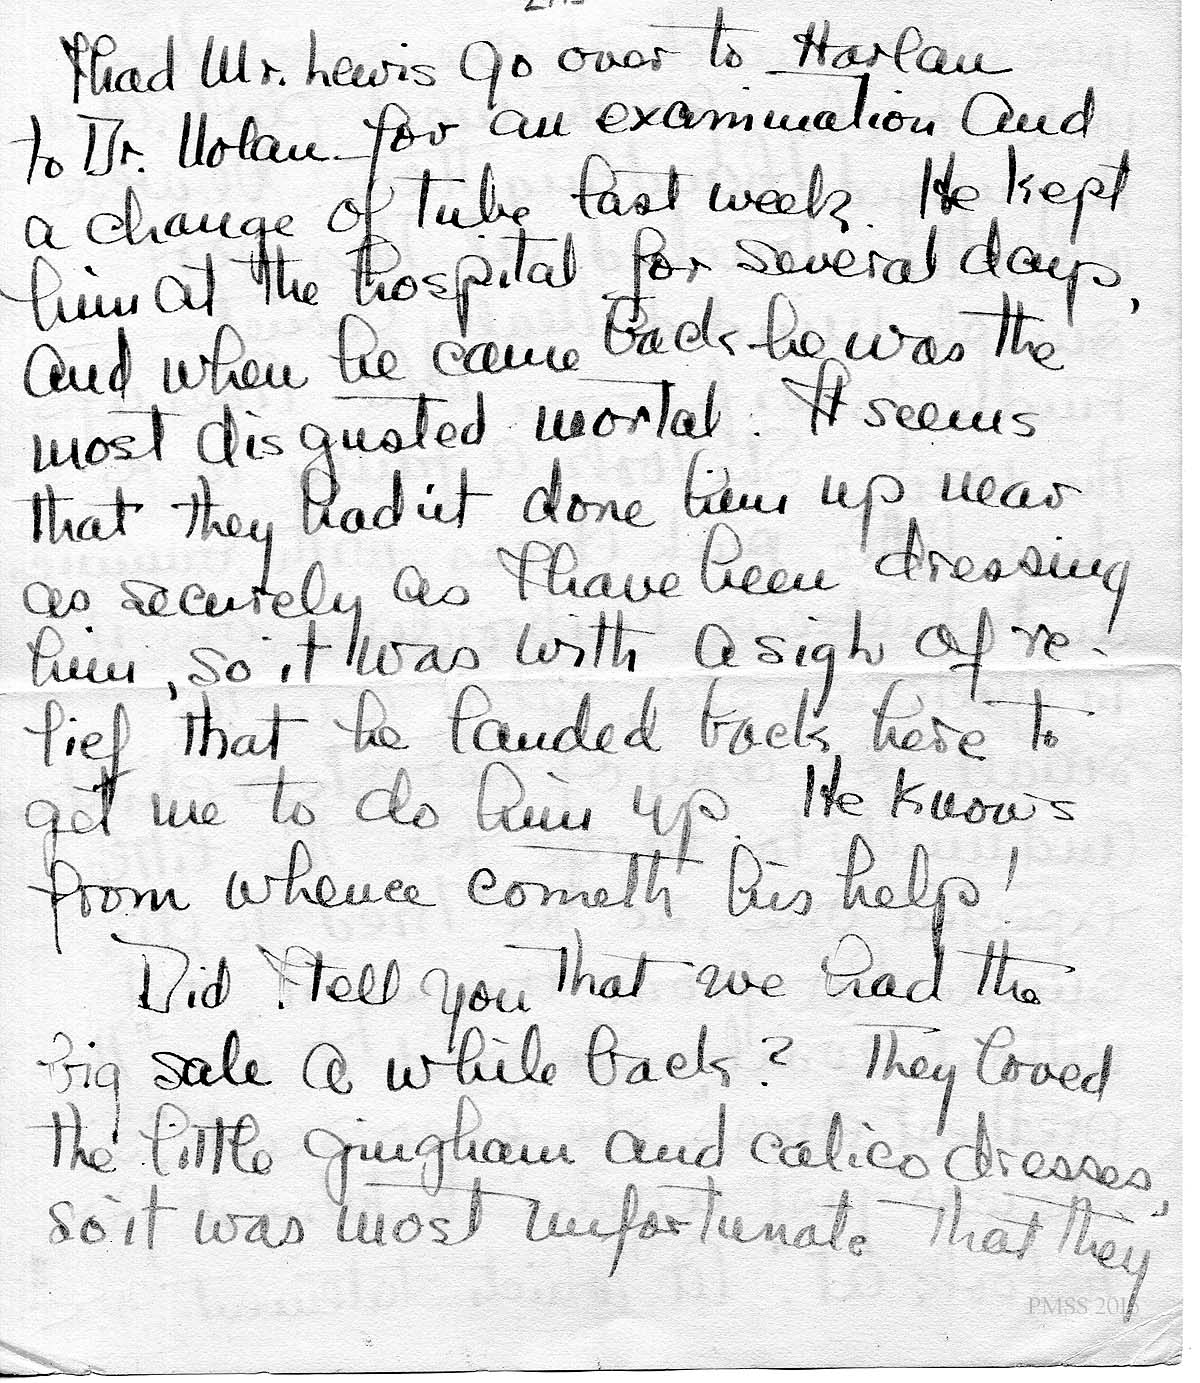 I had Mr. Lewis go over to Harlan
to Dr. Nolan for an examination and
a change of tube last week. He kept
him at the hospital for several days,
and when he came back he was the
most disgusted mortal. It seems
that they hadn't done him up near
as securely as I have been dressing
him, so it was with a sigh of re-
lief that he landed back here to
get me to do him up. He knows
from whence cometh his help!
Did I tell you that we had the
big sale a while back? They loved
the little gingham and calico dresses,
so it was most unfortunate that they
PMSS